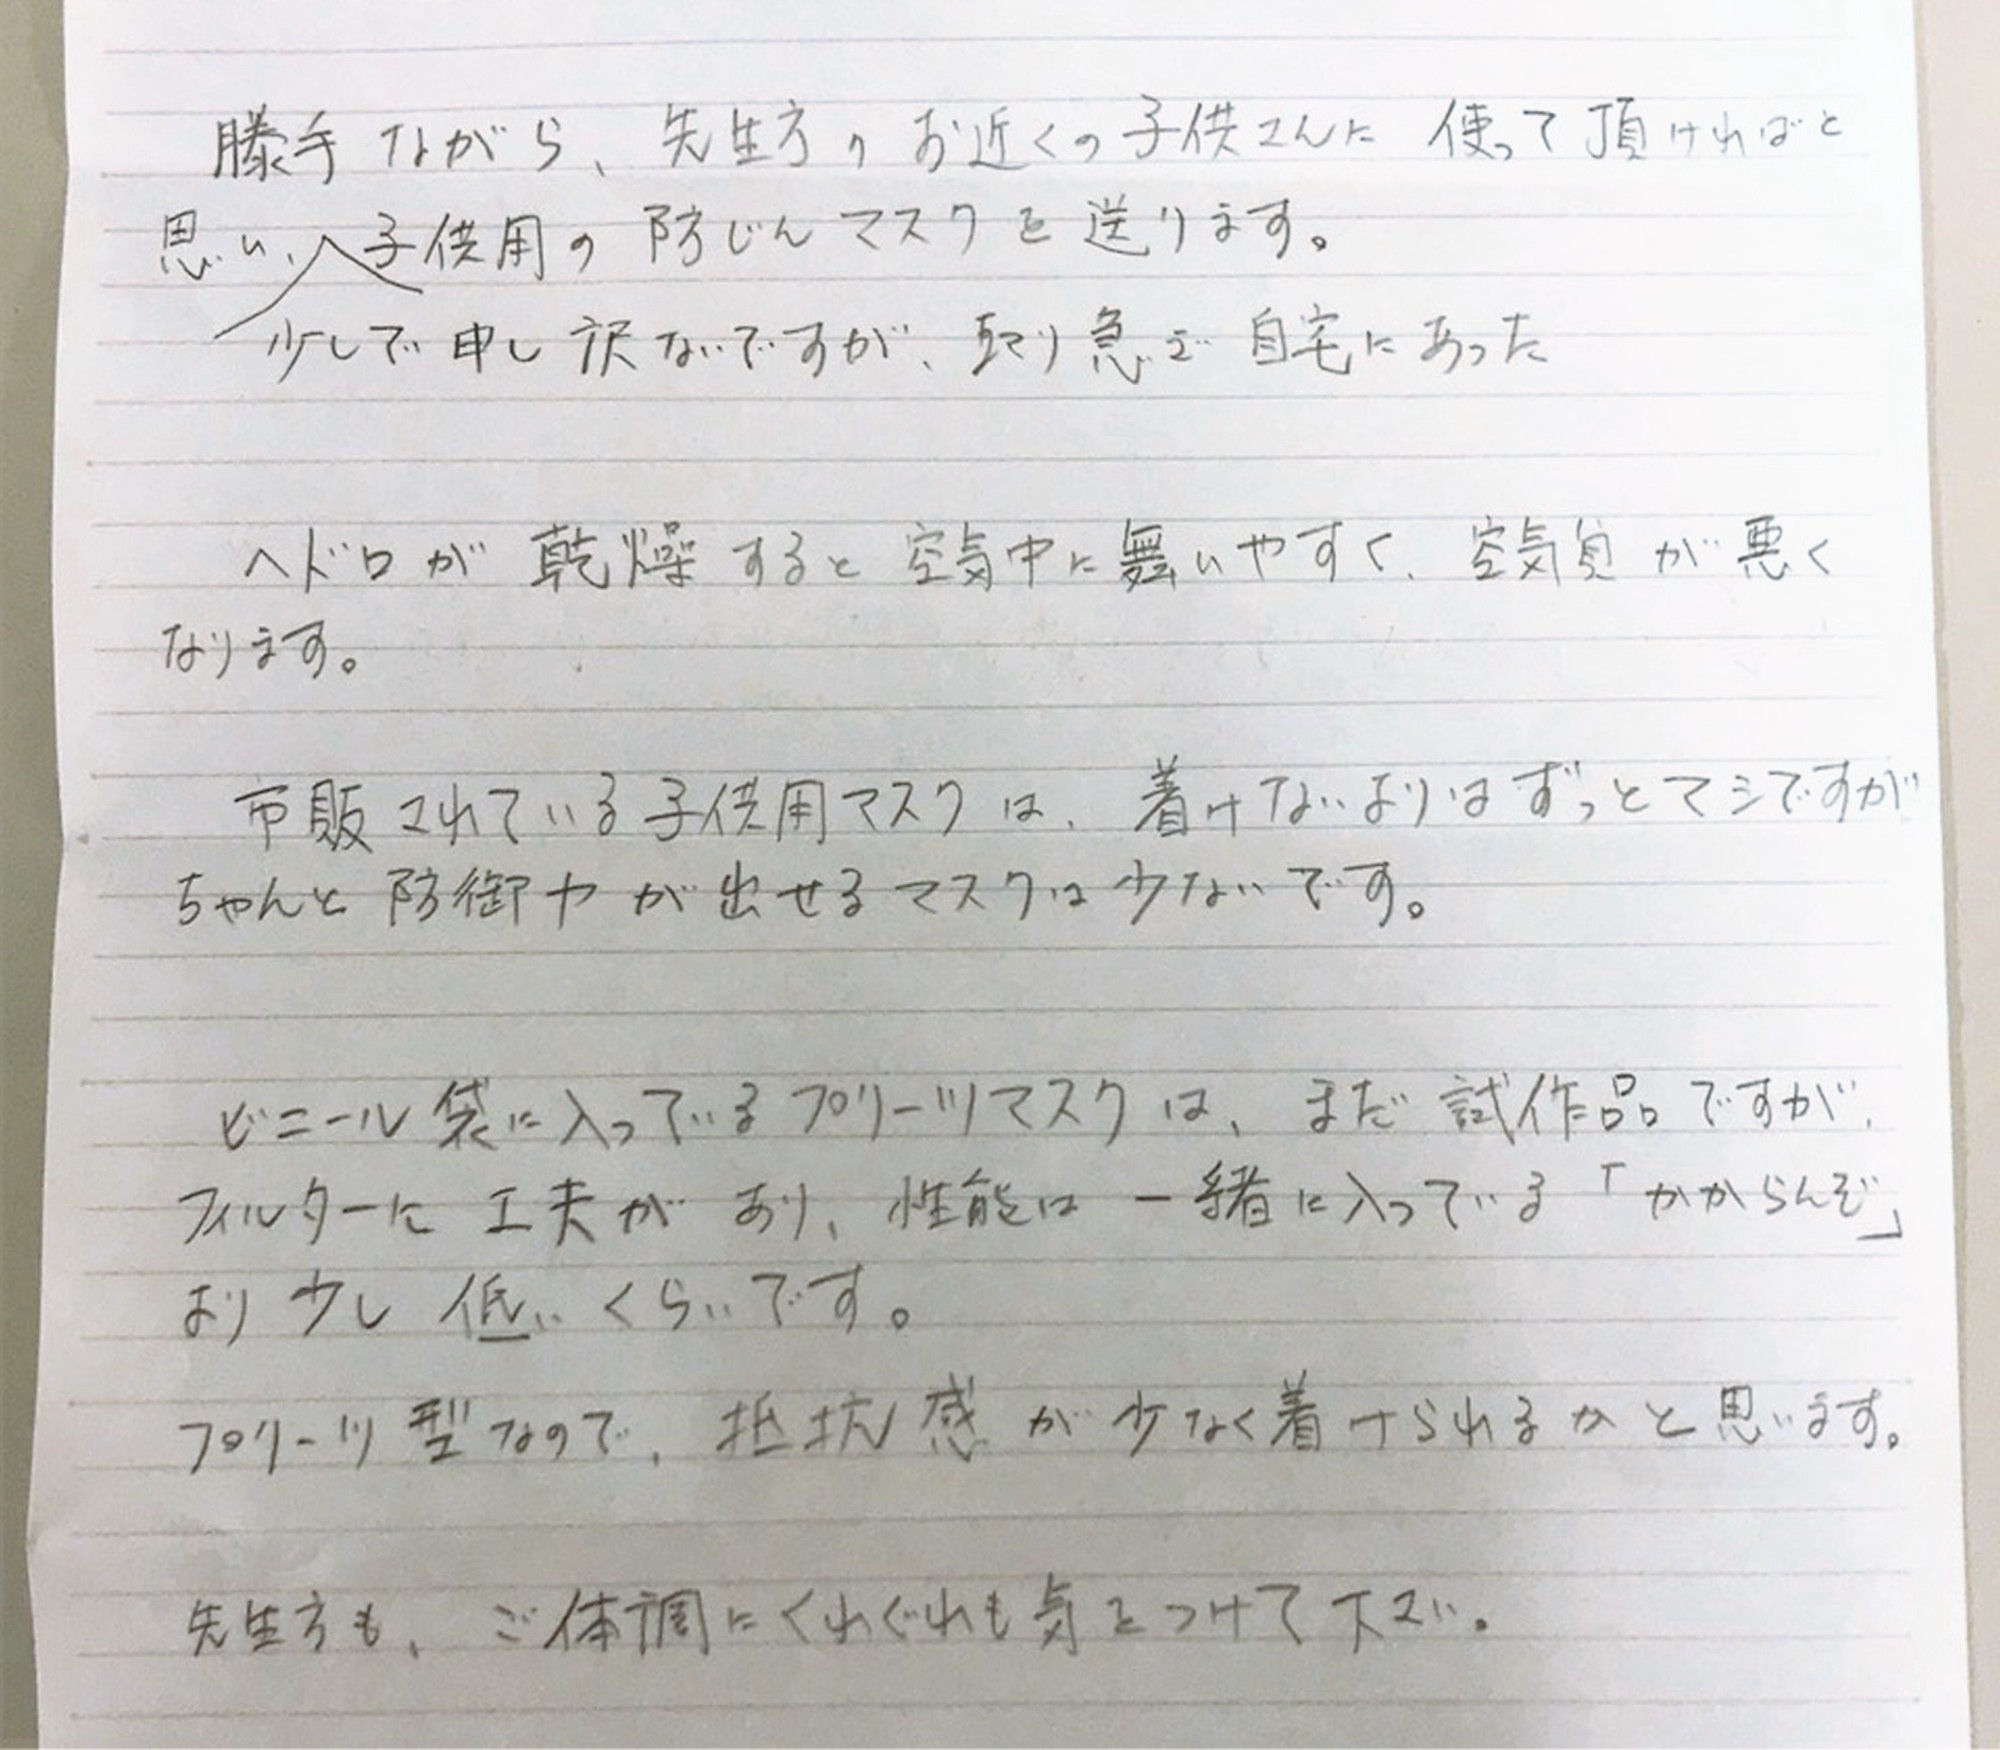 勝手ながら、先生方のお近くの子供さんに使って頂ければと
思い、子供用の防じんマスクを送ります。
少しで申し訳ないですが、取り急ぎ自宅にあった
ヘドロが乾燥すると空気中に舞いやすく、空気質が悪く
なります。
市販されている子供用マスクは、着けないよりはずっとマシですが
ちゃんと防御力が出せるマスクは少ないです。
ビニール袋に入っているプリーツマスクは、まだ試作品ですが、
フィルターに工夫があり、性能は一緒に入っている「かからんぞ」
より少し低いくらいです。
プリーツ型なので、抵抗感が少なく着けられるかと思います。
先生方も、ご体調にくれぐれも気をつけて下さい。